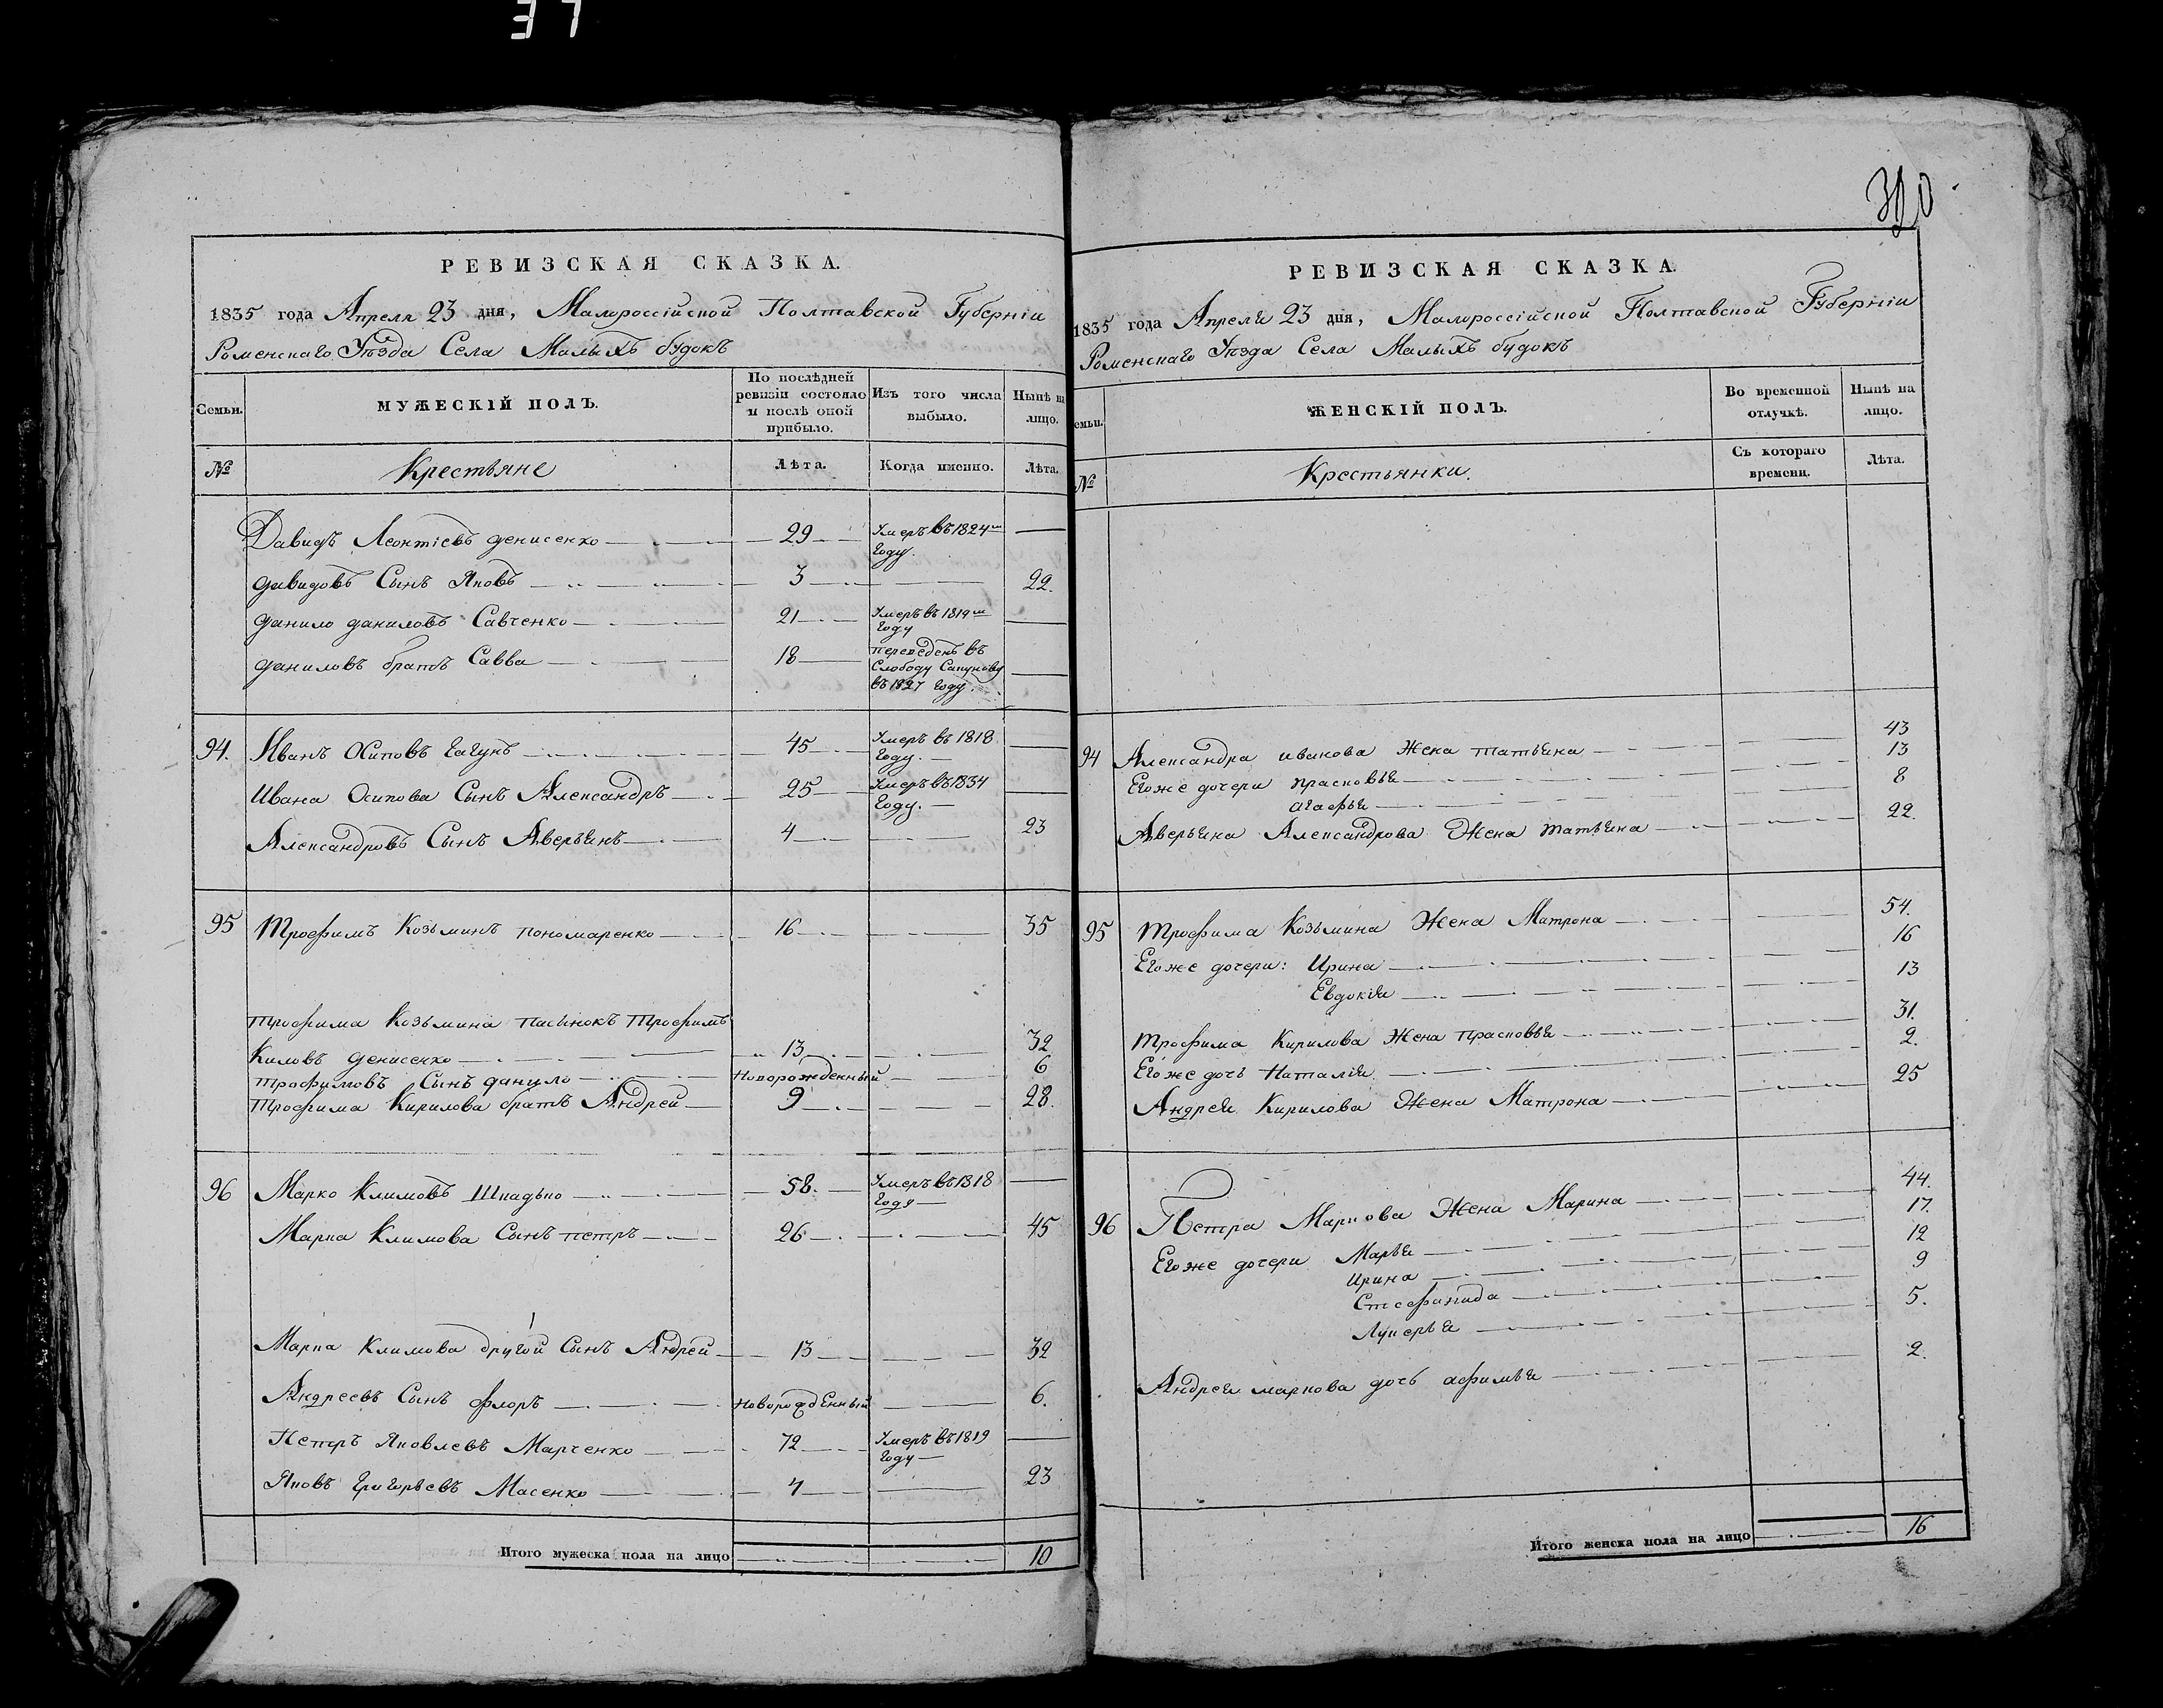 320
РЕВИЗСКАЯ СКАЗКА.
1835 года Апреля 23 дня, Малороссійской Полтавской Губерніи
Роменскаго Уѣзда Села Малыхъ будокъ
Семьи.
МУЖЕСКІЙ ПОЛЪ.
По послѣдней ревизіи состояло и послѣ оной прибыло.
Изъ того числа выбыло.
Нынѣ на лицо.
№
Крестьяне
Лѣта.
Когда именно.
Лѣта.
Давидъ Леонтіевъ денисенко 29 Умеръ въ 1824м
Году.
давидовъ Сынъ Яковъ 3 22.
данило даниловъ Савченко 21 Умеръ въ 1819м
Году
даниловъ братъ Савва 18 переведенъ въ
Слободу Сапунову
въ 1827 Году.
94. Иванъ Осиповъ Гагунъ 45 Умеръ въ 1818
Году.
Ивана Осипова Сынъ Александръ 25 Умеръ въ 1834
Году.
Александровъ Сынъ Аверьянъ 4 23
95 Трофимъ Козьминъ пономаренко 16 35
трофима Козьмина пасынокъ Трофимъ
Киловъ денисенко 13 32
трофимовъ Сынъ данило Новорожденный 6
трофима Кирилова братъ Андрей 9 28.
96 Марко Климовъ Шкадько 58. Умеръ въ 1818
Году
Марка Климова Сынъ петръ 26 45
Марка Климова другой Сынъ Андрей 13 32
Андреевъ Сынъ флоръ Новорожденный 6.
Петръ Яковлевъ Марченко 72 Умеръ въ 1819
Году
Яковъ Григорьевъ Масенко 4 23
Итого мужеска пола на лицо 10
РЕВИЗСКАЯ СКАЗКА.
1835 года Апреля 23 дня, Малороссійской Полтавской Губерніи
Роменскаго Уѣзда Села Малыхъ будокъ
емьи.
ЖЕНСКІЙ ПОЛЪ.
Во временной отлучкѣ.
Нынѣ на лицо.
№
Крестьянки.
Съ котораго времени.
Лѣта.
94 Александра иванова Жена татьяна 43
Егоже дочери прасковья 13
агафья 8
Аверьяна Александрова Жена татьяна 22.
95 трофима Козьмина Жена Матрона 54.
Егоже дочери: Ирина 16
Евдокія 13
трофима Кирилова Жена прасковья 31.
Егоже дочь Наталія 2.
Андрея Кирилова Жена Матрона 25
96 Петра Маркова Жена Марина 44.
Егоже дочери Марья 17.
Ирина 12
Стефанида 9
Лукерья 5.
Андрея маркова дочь афимья 2.
Итого женска пола на лицо 16